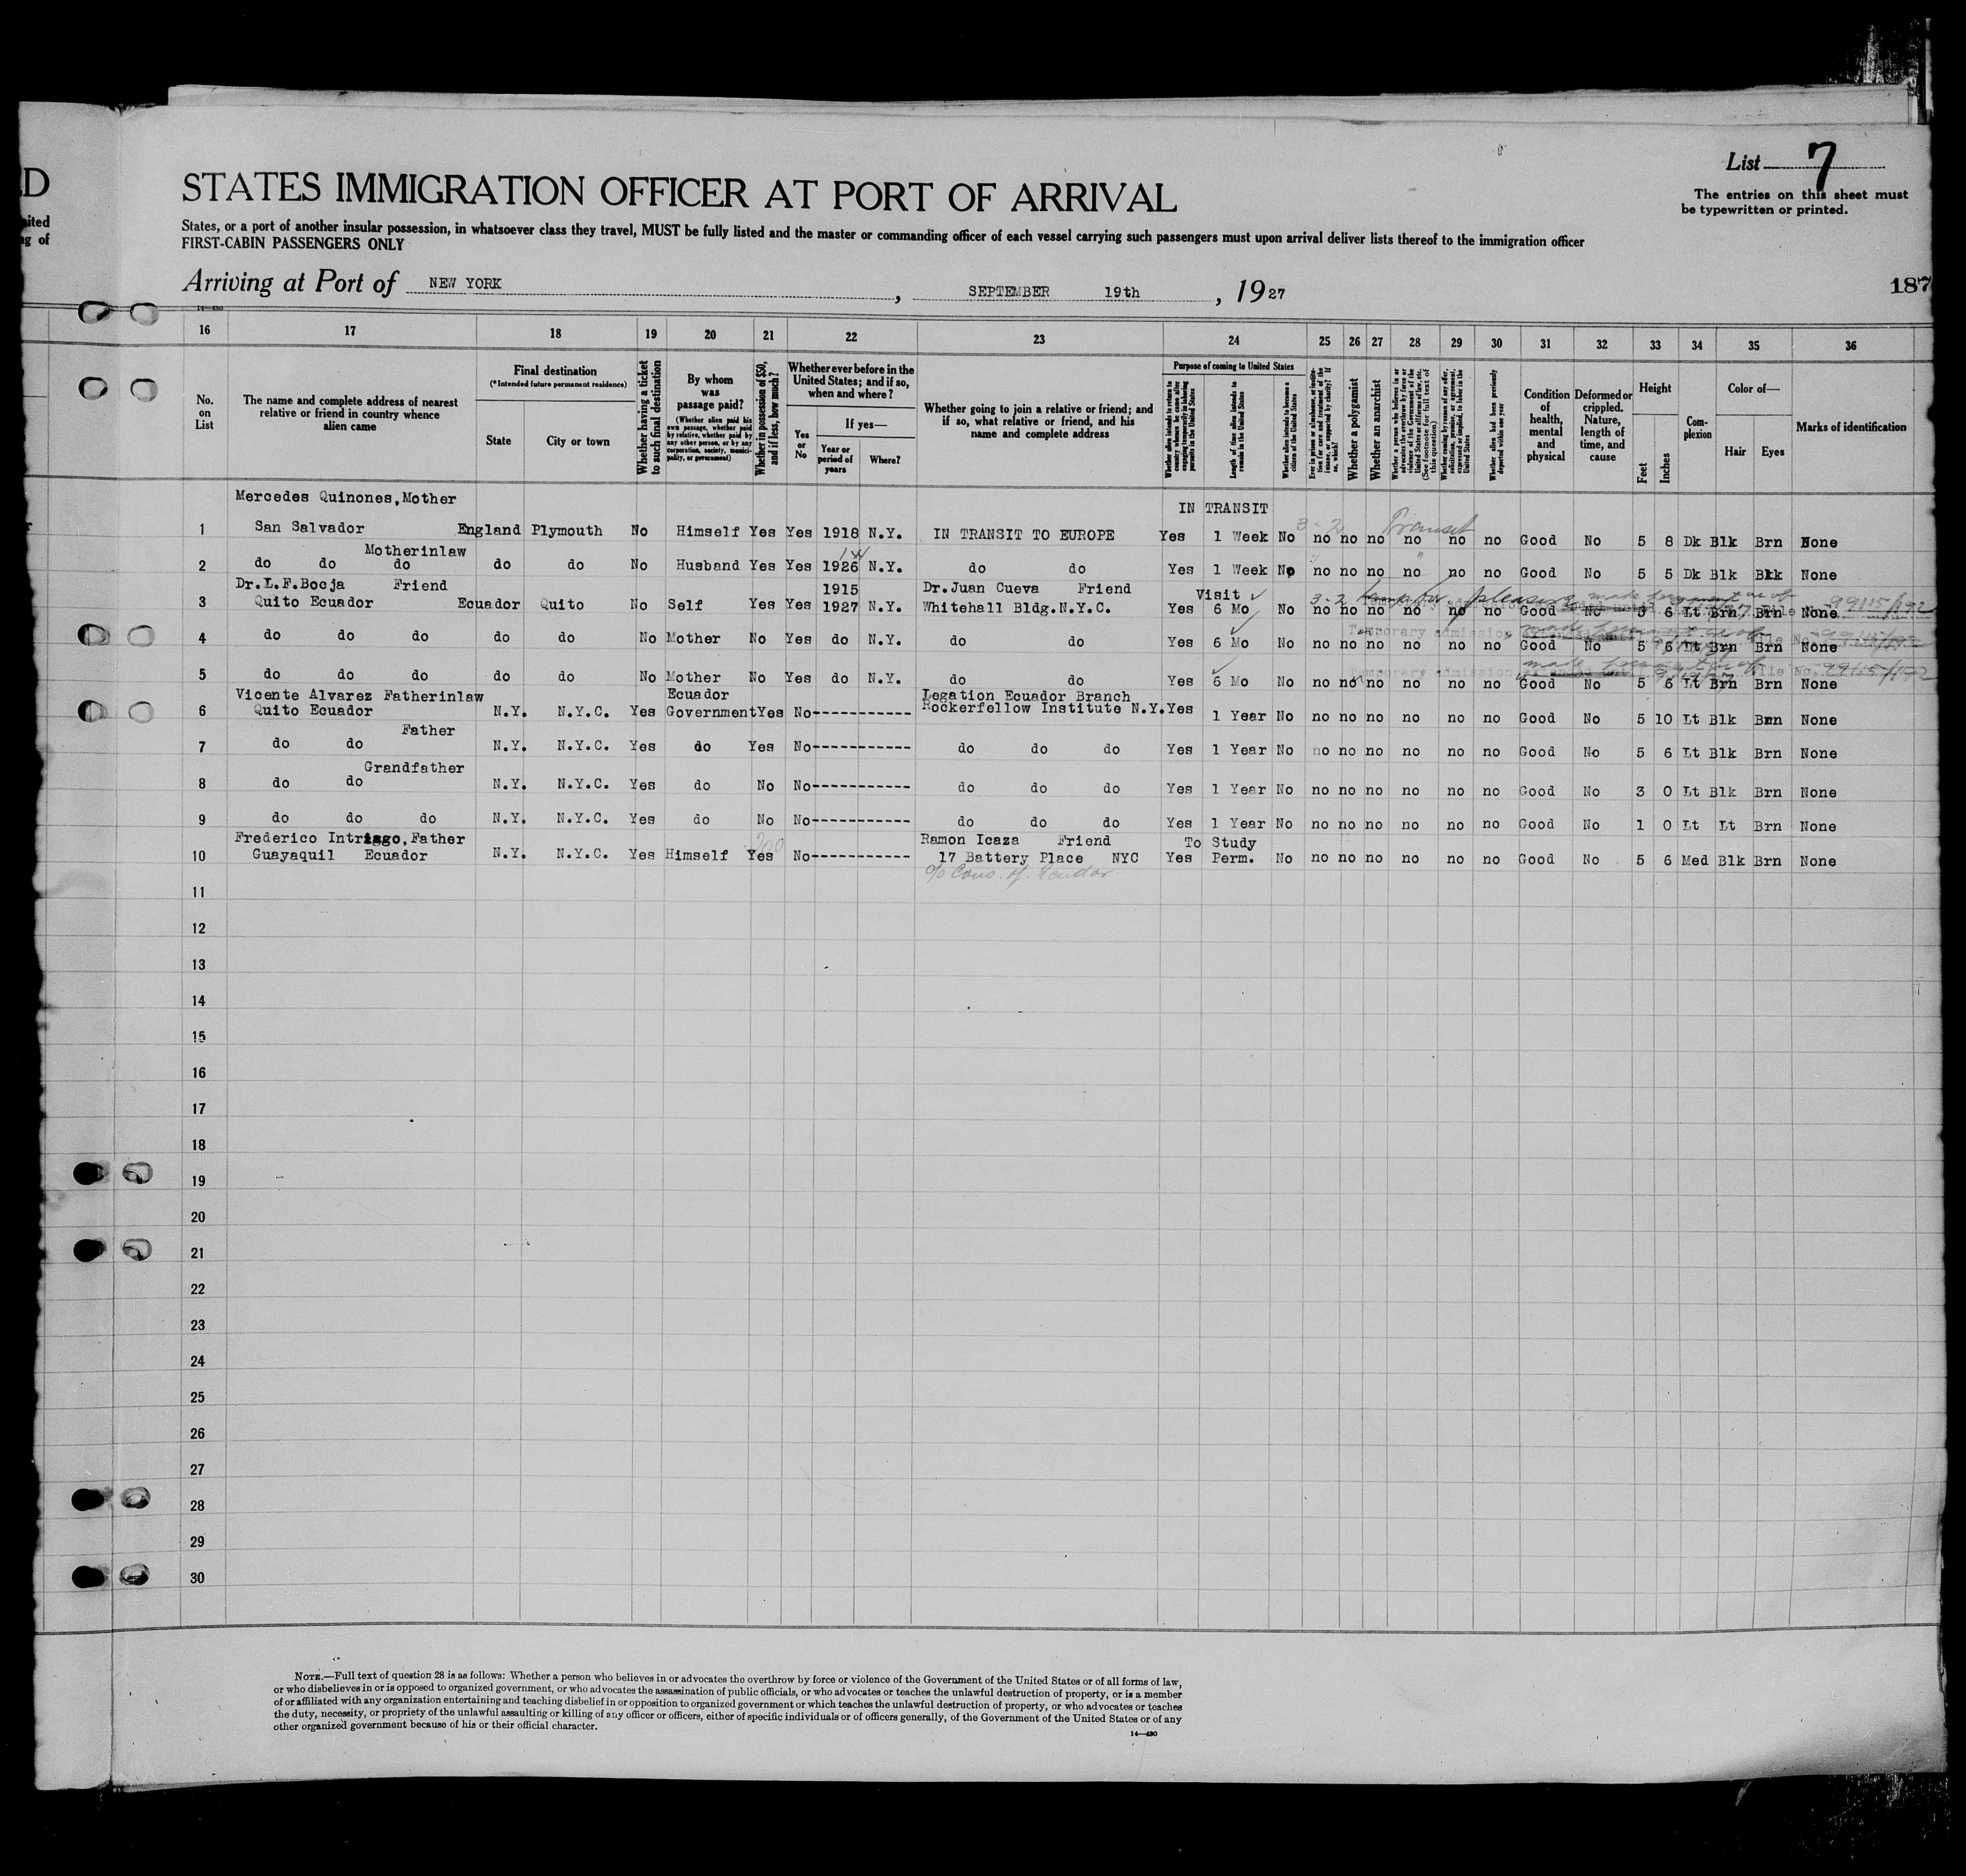 List 7
The entries on this sheet must
be typewritten or printed.
D
STATES IMMIGRATION OFFICER AT PORT OF ARRIVAL
ited
g of
States, or a port of another insular possession, in whatsoever class they travel, MUST be fully listed and the master or commanding officer of each vessel carrying such passengers must upon arrival deliver lists thereof to the immigration officer
FIRST-CABIN PASSENGERS ONLY
Arriving at Port of NEW YORK, SEPTEMBER 19th, 1927
187
14—430
16 17 18 19 20 21 22 23 24 25 26 27 28 29 30 31 32 33 34 35 36
No. on List
The name and complete address of nearest relative or friend in country whence alien came
Final destination
(*Intended future permanent residence)
State
City or town
Whether having a ticket to such final destination
By whom was passage paid?
(Whether alien paid his own passage, whether paid by relative, whether paid by any other person, or by any corporation, society, municipality, or government)
Whether in possession of $50, and if less, how much?
Whether ever before in the United States; and if so, when and where?
Yes or No
If yes—
Year or period of years
Where?
Whether going to join a relative or friend; and if so, what relative or friend, and his name and complete address
Purpose of coming to United States
Whether alien intends to return to country whence he came after engaging temporarily in laboring pursuits in the United States
Length of time alien intends to remain in the United States
Whether alien intends to become a citizen of the United States
Ever in prison or almshouse, or institution for care and treatment of the insane, or supported by charity? If so, which?
Whether a polygamist
Whether an anarchist
Whether a person who believes in or advocates the overthrow by force or violence of the Government of the United States or all forms of law, etc. (See footnote for full text of this question)
Whether coming by reason of any offer, solicitation, promise, or agreement, expressed or implied, to labor in the United States
Whether alien had been previously deported within one year
Condition of health, mental and physical
Deformed or crippled. Nature, length of time, and cause
Height
Feet
Inches
Complexion
Color of—
Hair
Eyes
Marks of identification
Mercedes Quinones, Mother IN TRANSIT
1 San Salvador England Plymouth No Himself Yes Yes 1918 N.Y. IN TRANSIT TO EUROPE Yes 1 Week No 3-2 no no no Transit no no no Good No 5 8 Dk Blk Brn None
Motherinlaw 14
2 do do do do do No Husband Yes Yes 1926 N.Y. do do Yes 1 Week No no no no no no no Good No 5 5 Dk Blk Blk None
Dr.L.F.Borja Friend 1915 Dr.Juan Cueva Friend Visit
3 Quito Ecuador Ecuador Quito No Self Yes Yes 1927 N.Y. Whitehall Bldg.N.Y.C. Yes 6 Mo No 3-2 no no no no no no pleasure Good No 5 6 Lt Brn Brn None 99115/172
4 do do do do do No Mother No Yes do N.Y. do do Yes 6 Mo No no no no no no no Temporary admission Good No 5 6 Lt Brn Brn None File No. 99115/172
5 do do do do do No Mother No Yes do N.Y. do do Yes 6 Mo No no no no no no no Temporary admission Good No 5 6 Lt Brn Brn None File No. 99115/172
Vicente Alvarez Fatherinlaw Ecuador Legation Ecuador Branch
6 Quito Ecuador N.Y. N.Y.C. Yes Government Yes No----------- Rockerfellow Institute N.Y. Yes 1 Year No no no no no no no Good No 5 10 Lt Blk Brn None
Father
7 do do N.Y. N.Y.C. Yes do Yes No----------- do do do Yes 1 Year No no no no no no no Good No 5 6 Lt Blk Brn None
Grandfather
8 do do N.Y. N.Y.C. Yes do No No----------- do do do Yes 1 Year No no no no no no no Good No 3 0 Lt Blk Brn None
9 do do do N.Y. N.Y.C. Yes do No No----------- do do do Yes 1 Year No no no no no no no Good No 1 0 Lt Lt Brn None
Frederico Intriago, Father 200 Ramon Icaza Friend To Study
10 Guayaquil Ecuador N.Y. N.Y.C. Yes Himself Yes No----------- 17 Battery Place NYC Yes Perm. No no no no no no no Good No 5 6 Med Blk Brn None
c/o Cons. of Ecuador
11
12
13
14
15
16
17
18
19
20
21
22
23
24
25
26
27
28
29
30
NOTE.—Full text of question 28 is as follows: Whether a person who believes in or advocates the overthrow by force or violence of the Government of the United States or of all forms of law,
or who disbelieves in or is opposed to organized government, or who advocates the assassination of public officials, or who advocates or teaches the unlawful destruction of property, or is a member
of or affiliated with any organization entertaining and teaching disbelief in or opposition to organized government or which teaches the unlawful destruction of property, or who advocates or teaches
the duty, necessity, or propriety of the unlawful assaulting or killing of any officer or officers, either of specific individuals or of officers generally, of the Government of the United States or of any
other organized government because of his or their official character.
14—430